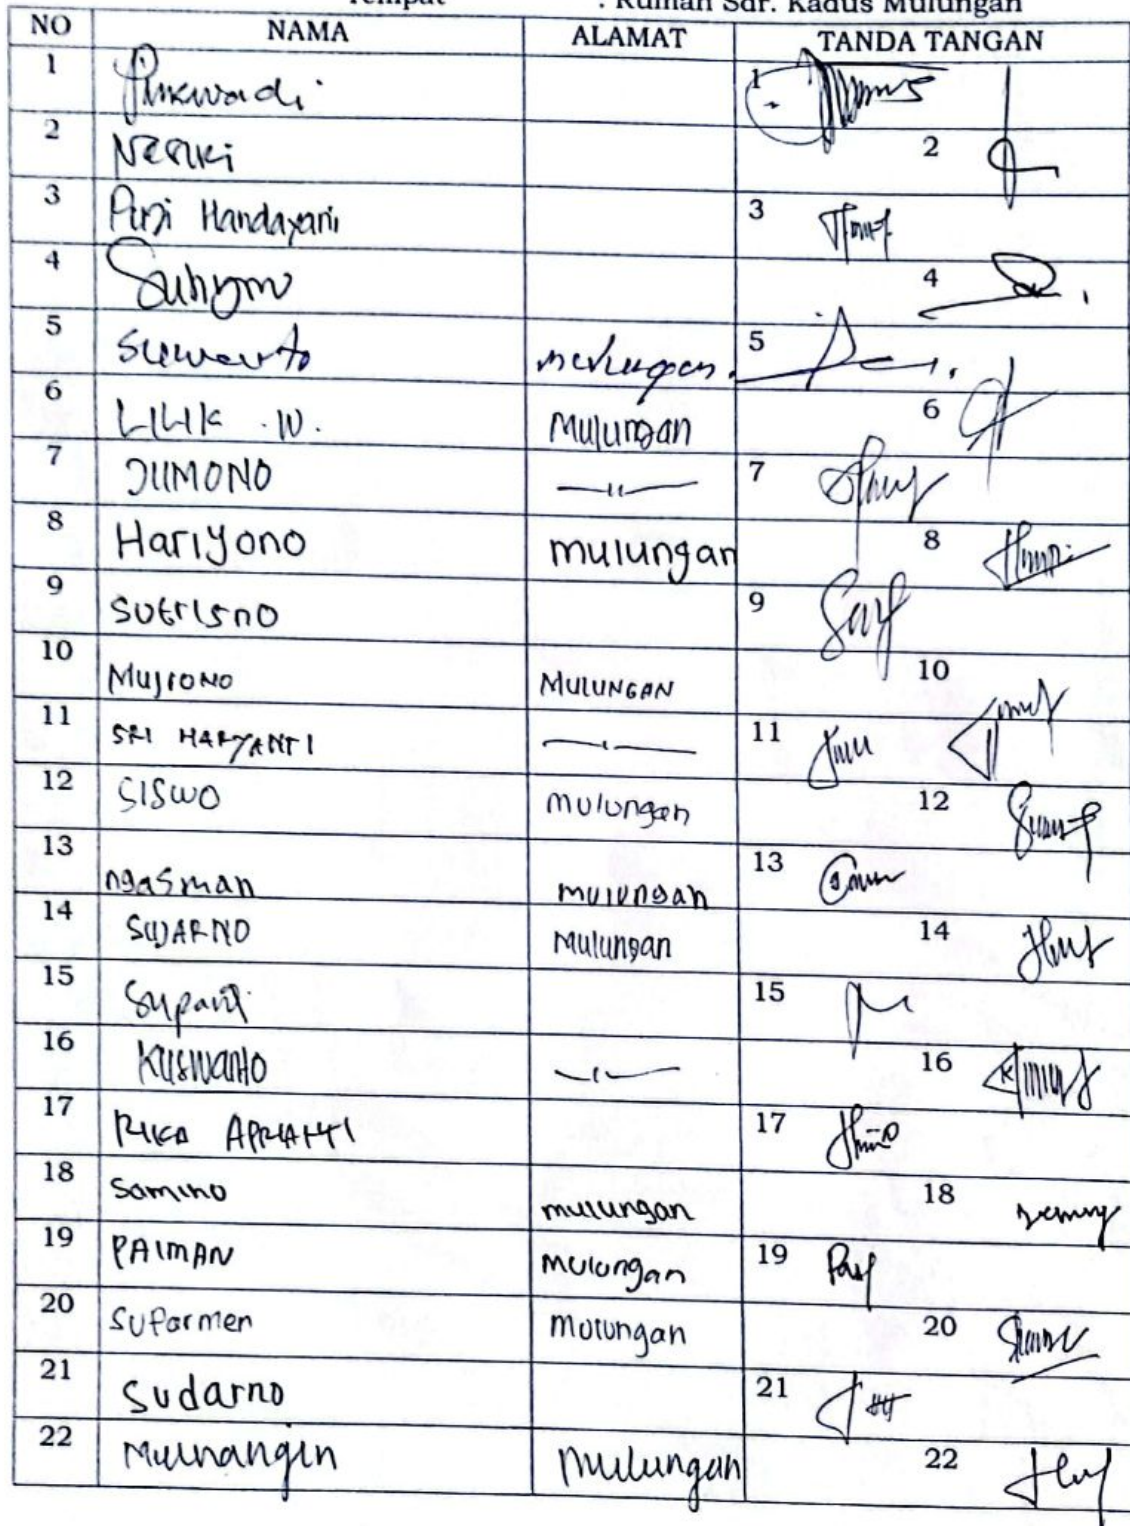 Tempat : Rumah Sdr. Kadus Mulungan
NO NAMA ALAMAT TANDA TANGAN
1 1
2 2
3 Puji Handayani 3
4 4
5 Suwarto mulungan. 5
6 LILIK .W. Mulungan 6
7 JUMONO —〃— 7
8 Hariyono mulungan 8
9 Sutrisno 9
10 MUJIONO MULUNGAN 10
11 SRI HARYANTI —〃— 11
12 SISWO mulungan 12
13 ngasman mulungan 13
14 SUJARNO Mulungan 14
15 15
16 KUSWANTO —〃— 16
17 RIKA APRIANTI 17
18 Samino mulungan 18
19 PAIMAN mulungan 19
20 Suparmen mulungan 20
21 Sudarno 21
22 mulungan 22